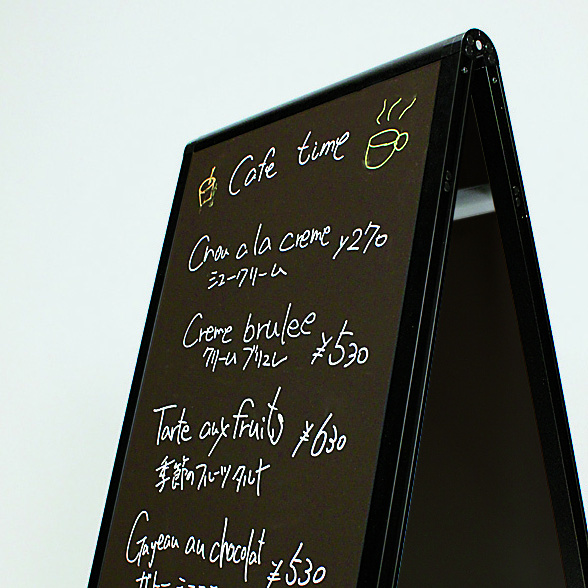 Cafe time
Chou a la creme ¥270
シュークリーム
Creme brulee ¥530
クリームブリュレ
Tarte aux fruits ¥630
季節のフルーツタルト
Gayeau au chocolat ¥530
ガトーショコラ